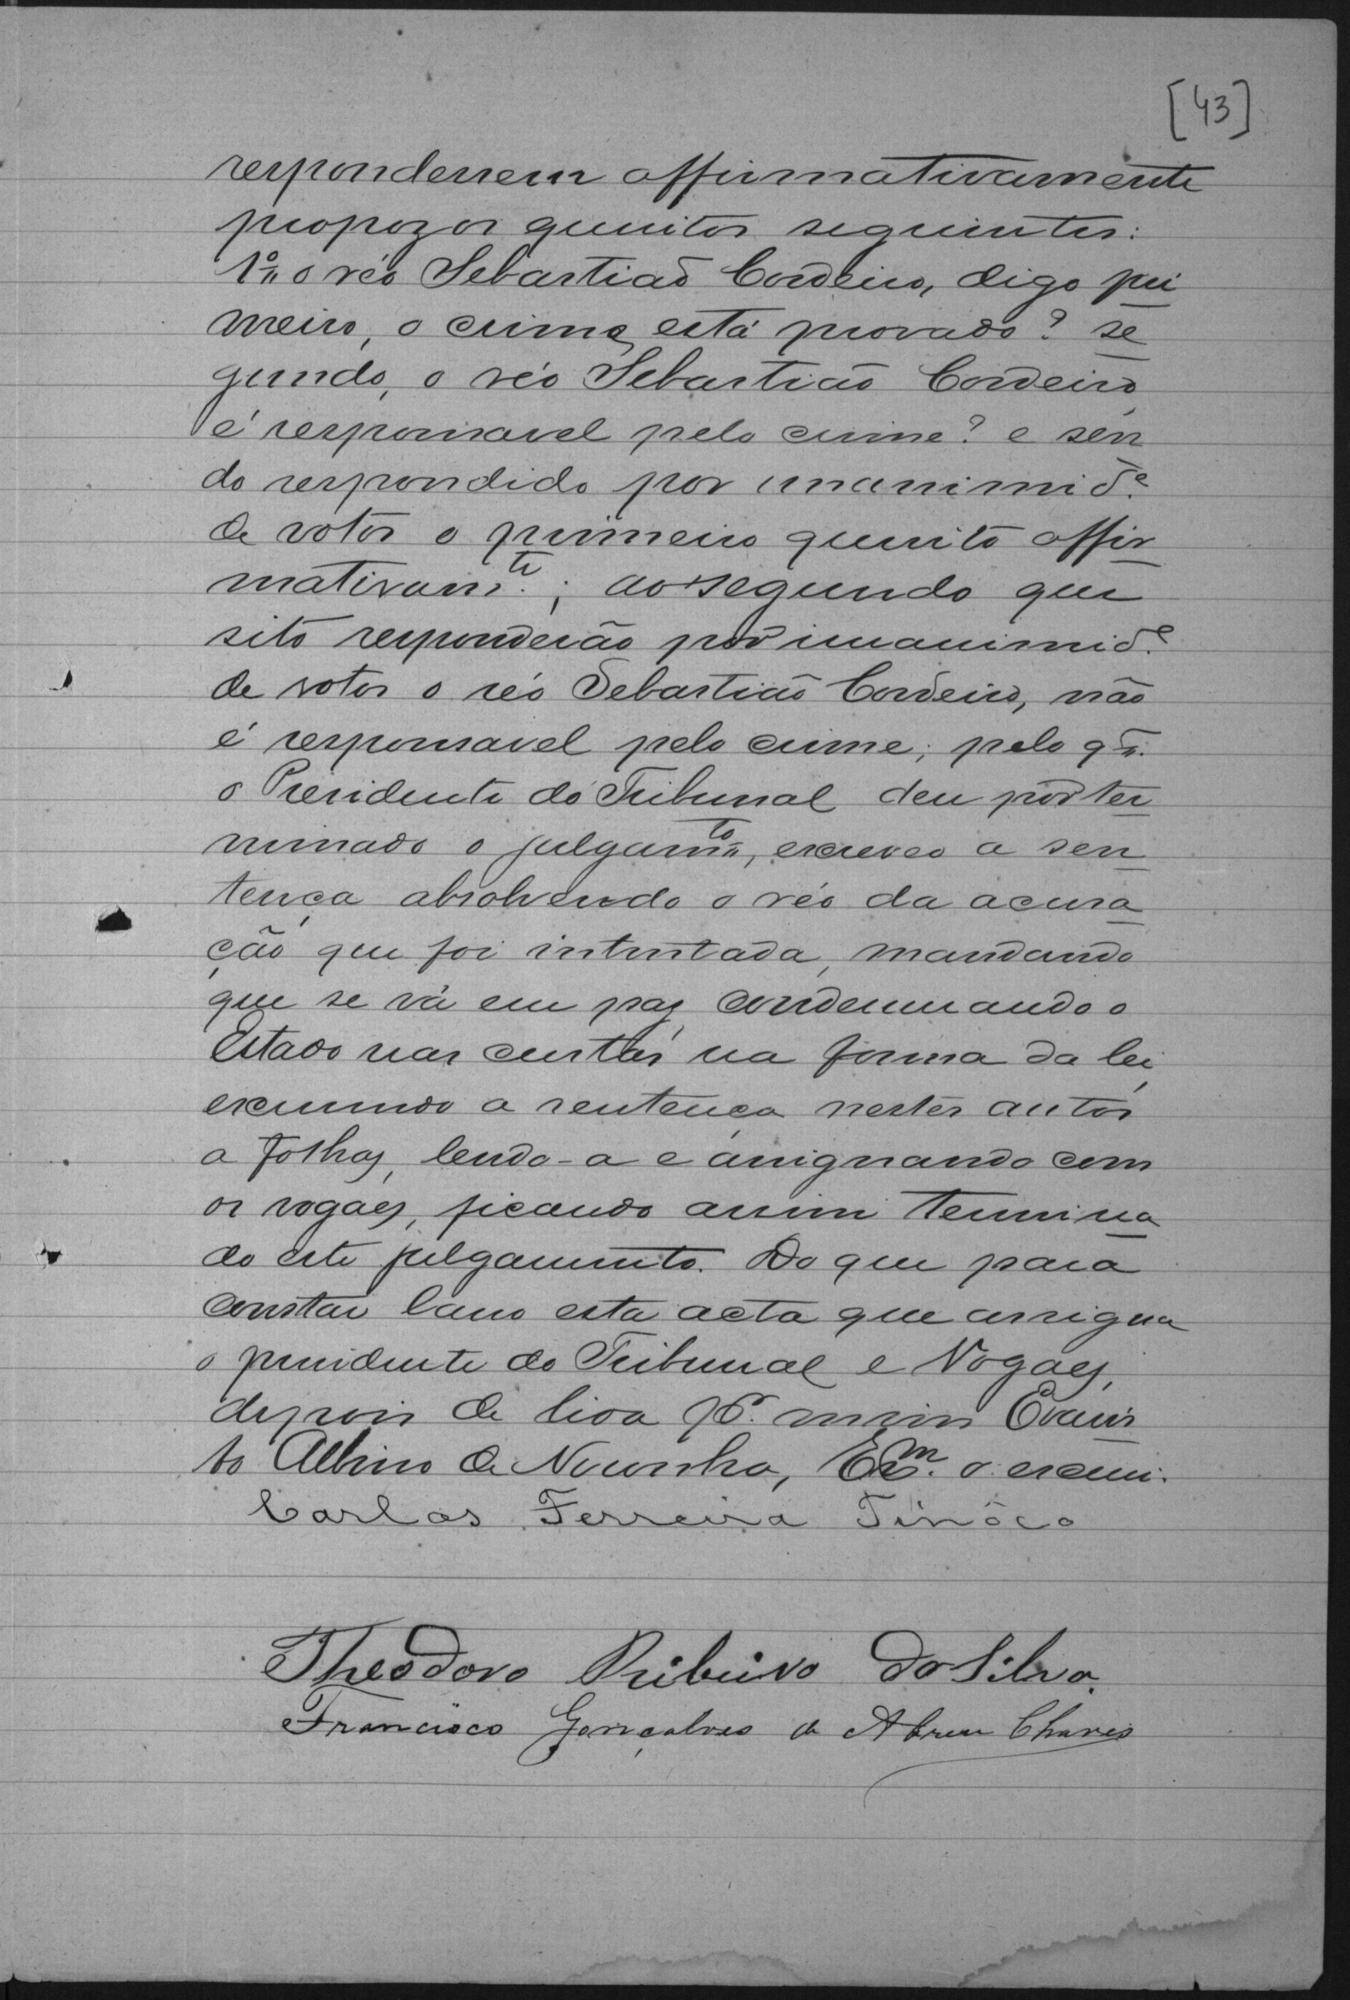 [43]
responderem affirmativamente
propoz os quesitos seguintes:
1º o réo Sebastião Cordeiro, digo pri
meiro, o crime está provado? se
gundo, o réo Sebastião Cordeiro
é responsavel pelo crime? e sen
do respondido por unanimid.e
de votos o primeiro quesito affir
mativam.te; ao segundo que
sito responderão por unanimid.e
de votos o réo Sebastião Cordeiro, não
é responsavel pelo crime; pelo q.
o Presidente do Tribunal deu por ter
minado o julgam.to, escreveo a sen
tença absolvendo o réo da acusa
ção que foi intentada, mandando
que se vá em paz condemnando o
Estado nas custas na forma da lei
escrevendo a sentença nestes autos
a folhas, lendo-a e assignando com
os vogaes, ficando assim termina
do este julgamento. Do que para
constar lavro esta acta que assigna
o presidente do Tribunal e Vogaes,
depois de lida p.r mim Evaris
to Albino de Noronha, o escrevi.
Carlos Ferreira Tinôco
Theodoro Ribeiro da Silva.
Francisco Gonçalves de Abreu Chaves